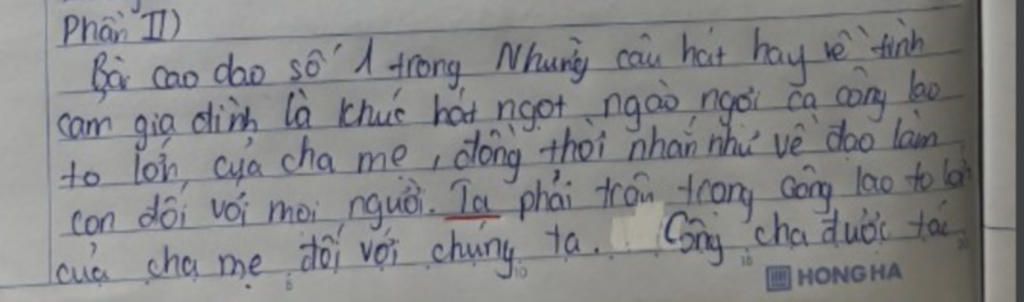 Phần II)
Bài cao dao số 1 trong Những câu hát hay về tình
cam gia đình là khúc hát ngọt ngào ngợi ca công lao
to lớn của cha mẹ, đồng thời nhắn nhủ về đạo làm
con đối với mọi người. Ta phải trân trong công lao to lớn
của cha mẹ đối với chúng ta. Công cha được tác
HONG HA